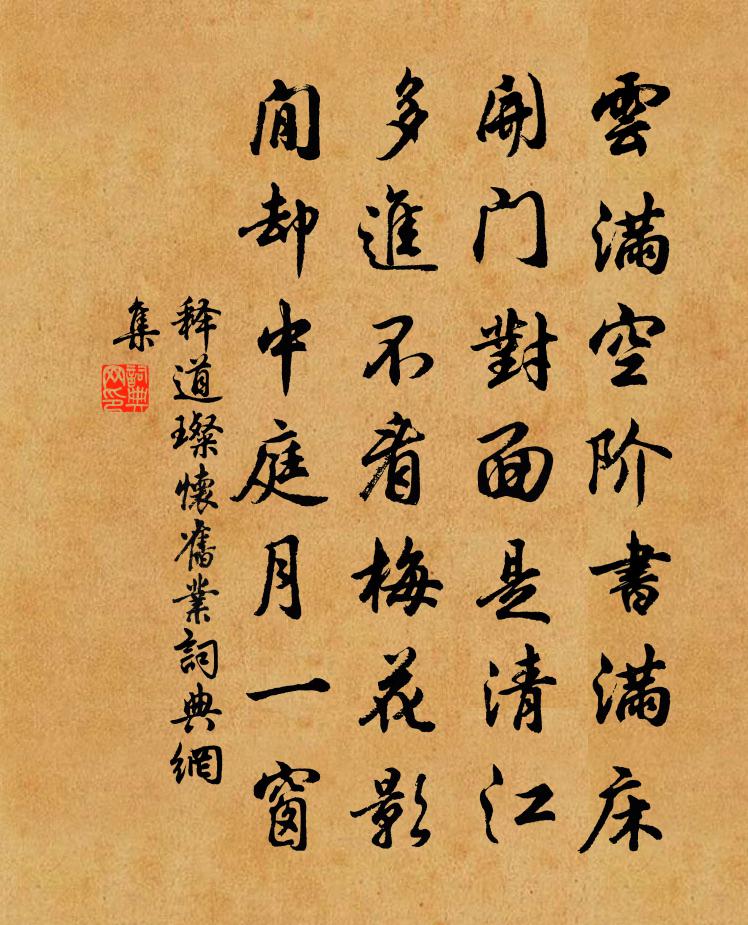 雲滿空阶書滿床
開门對面是清江
多進不看梅花影
閒却中庭月一窗
释道璨懷舊業詞典網
集
詞典
网印